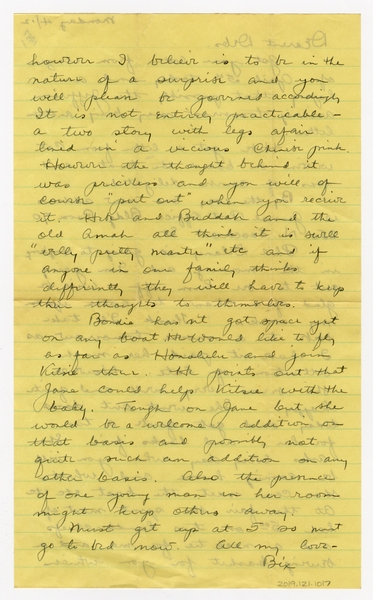 however I believe is to be in the
nature of a surprise and you
will please be governed accordingly
It is not entirely practicable -
a two story with legs affair
lined in a vicious Chinese pink.
However the thought behind it
was priceless and you will of
course "put out" when you receive
it. and Buddah and the
old Amah all think it is swell
"velly pretty " etc and if
anyone in our family thinks
differently they will have to keep
their thoughts to themselves.
Bondie hasn't got space yet
on any boat. He would like to fly
as far as Honolulu and join
Kitsie there. He points out that
Jane could help Kitsie with the
baby. Tough on Jane but she
would be a welcome addition on
that basis and possibly not
quite such an addition on any
other basis. Also the presence
of one young man in her room
might keep others away.
Must get up at 5 so must
go to bed now. All my love -
Bix
2019.121.1017